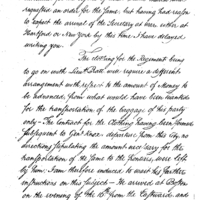 requested an order for the same: but having had reason
to expect the arrival of the Secretary at war either at
Hartford or New York by this time I have delayed
writing you.
The clothing for the Regiment being
to go on with Lieut. Pratt will require a different
arrangement with respect to the amount of Money to
be advanced, from what would have been essential
for the transportation of the baggage of the party
only - The Contract for the Clothing having been formed
subsequent to Genl Knox's departure from this city, no
directions stipulating the amount necessary for the
transportation of the same to the frontiers, were left
by him: I am therefore induced to wait his further
instructions on this subject - He arrived at Boston
on the evening of the 16th from the Eastward, and